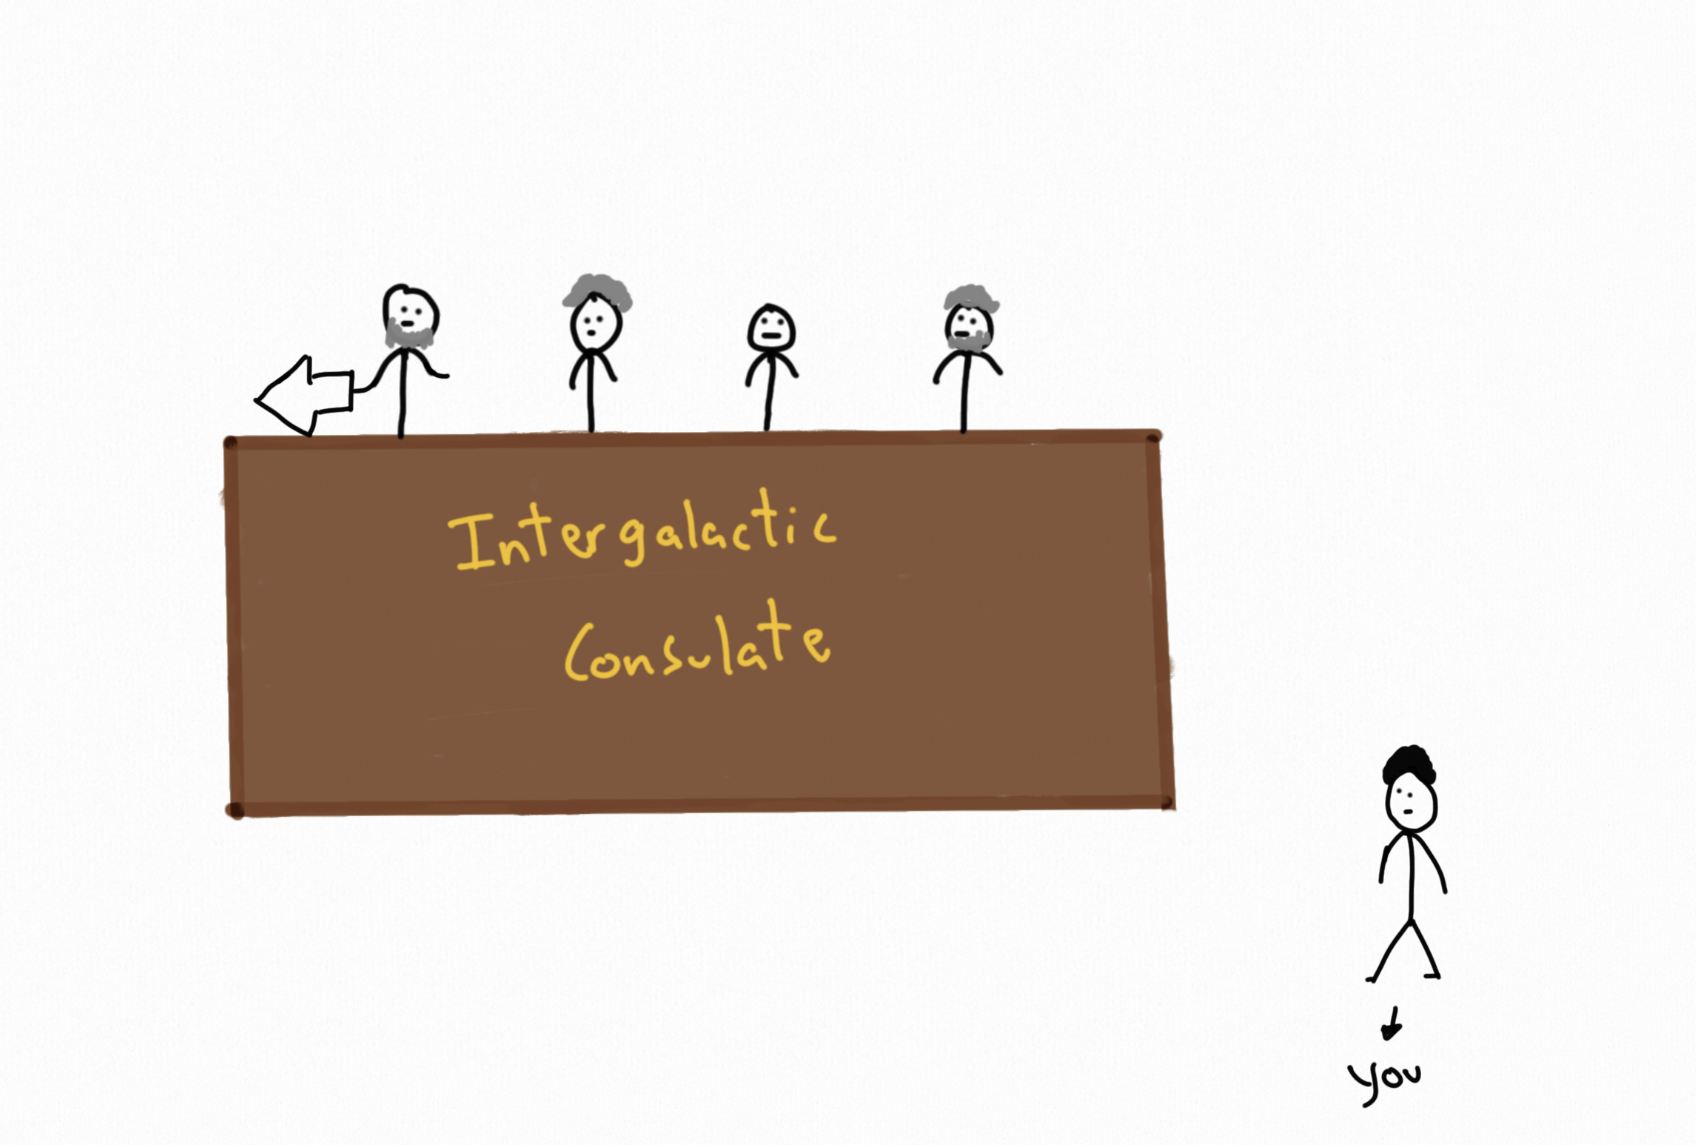 Intergalactic
Consulate
you